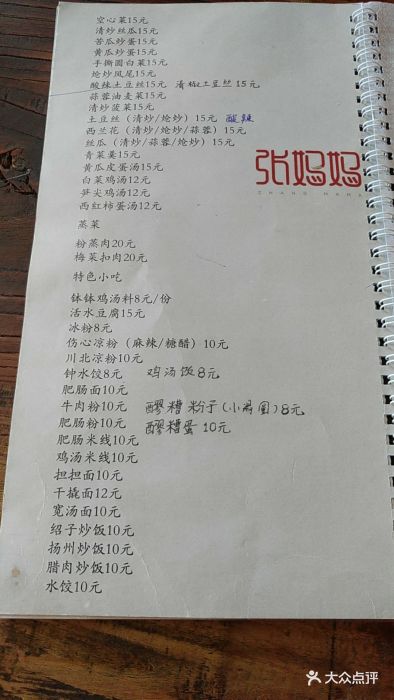 空心菜15元
清炒丝瓜15元
苦瓜炒蛋15元
黄瓜炒蛋15元
手撕圆白菜15元
炝炒凤尾15元
酸辣土豆丝15元 清椒土豆丝15元
蒜蓉油麦菜15元
清炒菠菜15元
土豆丝（清炒/炝炒）15元 酸辣
西兰花（清炒/炝炒/蒜蓉）15元
丝瓜（清炒/蒜蓉/炝炒）15元
青菜羹15元
黄瓜皮蛋汤15元
白菜鸡汤12元
笋尖鸡汤12元
西红柿蛋汤12元
张妈妈
ZHANG MAMA
蒸菜
粉蒸肉20元
梅菜扣肉20元
特色小吃
钵钵鸡汤料8元/份
活水豆腐15元
冰粉8元
伤心凉粉（麻辣/糖醋）10元
川北凉粉10元
钟水饺8元 鸡汤饭8元
肥肠面10元
牛肉粉10元 醪糟粉子(小汤圆)8元
肥肠粉10元 醪糟蛋10元
肥肠米线10元
鸡汤米线10元
担担面10元
干撬面12元
宽汤面10元
绍子炒饭10元
扬州炒饭10元
腊肉炒饭10元
水饺10元
大众点评